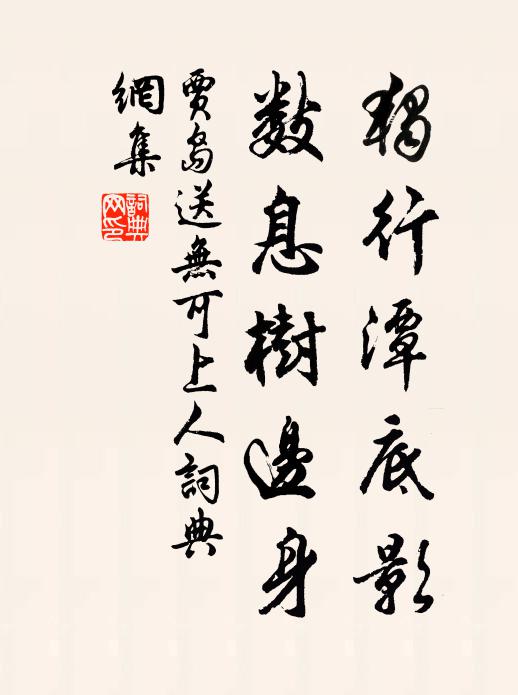 獨行潭底影
數息樹邊身
賈島送無可上人詞典
網集
詞典網印